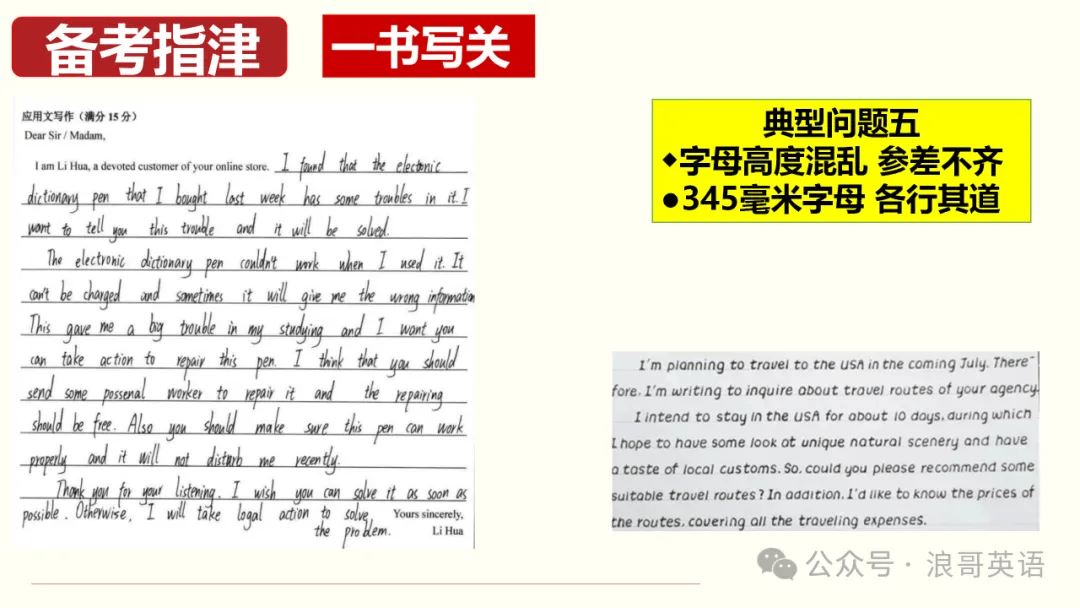 备考指津
一书写关
应用文写作（满分 15 分）
Dear Sir / Madam,
I am Li Hua, a devoted customer of your online store. I found that the electonic
dictionary pen that I bought last week has some troubles in it. I
want to tell you this trouble and it will be solved.
The electronic dictionary pen couldn't work when I used it. It
can't be charged and sometimes it will give me the wrong information
This gave me a big trouble in my studying and I want you
can take action to repair this pen. I think that you should
send some possenal worker to repair it and the repairing
should be free. Also you should make sure this pen can work
properly and it will not disturb me recently.
Thank you for your listening. I wish you can solve it as soon as
possible. Otherwise, I will take logal action to solve
the problem.
Yours sincerely,
Li Hua
典型问题五
◆字母高度混乱 参差不齐
●345毫米字母 各行其道
I'm planning to travel to the USA in the coming July. There-
fore, I'm writing to inquire about travel routes of your agency.
I intend to stay in the USA for about 10 days, during which
I hope to have some look at unique natural scenery and have
a taste of local customs. So, could you please recommend some
suitable travel routes? In addition, I'd like to know the prices of
the routes, covering all the traveling expenses.
公众号 · 浪哥英语